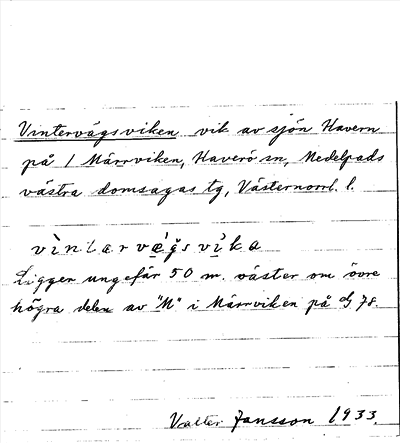 Vintervägsviken vik av sjön Havern
på / Märrviken, Haverö sn, Medelpads
västra domsagas tg, Västernorrl. l.
vìntarvæ̀gsvìka
Ligger ungefär 50 m. väster om övre
högra delen av "M" i Märrviken på G 78.
Valter Jansson 1933.